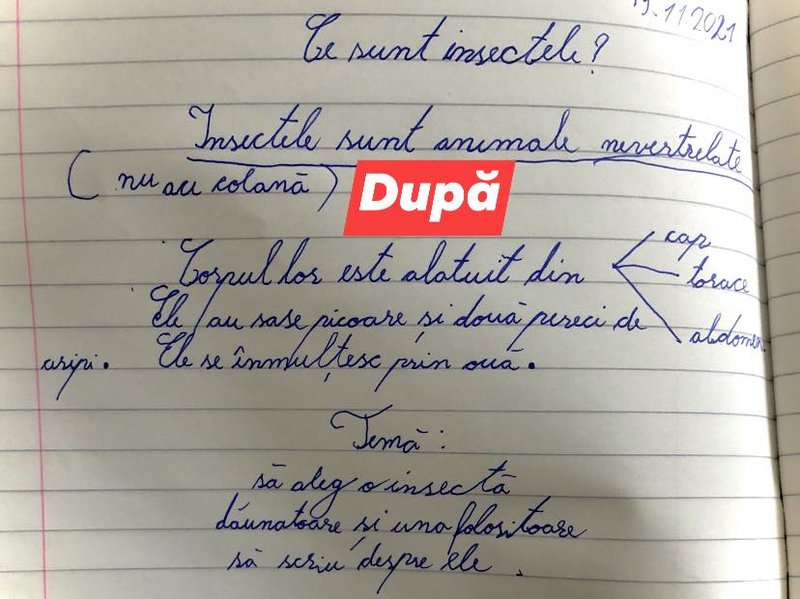 19.11 2021
Ce sunt insectele?
Insectele sunt animale nevertrelate
(nu au colană)
După
Corpul lor este alatuit din
cap
torace
abdomen
Ele au sase picoare și două pereci de
aripi. Ele se înmulțesc prin ouă.
Temă:
să aleg o insectă
dăunatoare și una folositoare
să scriu despre ele.